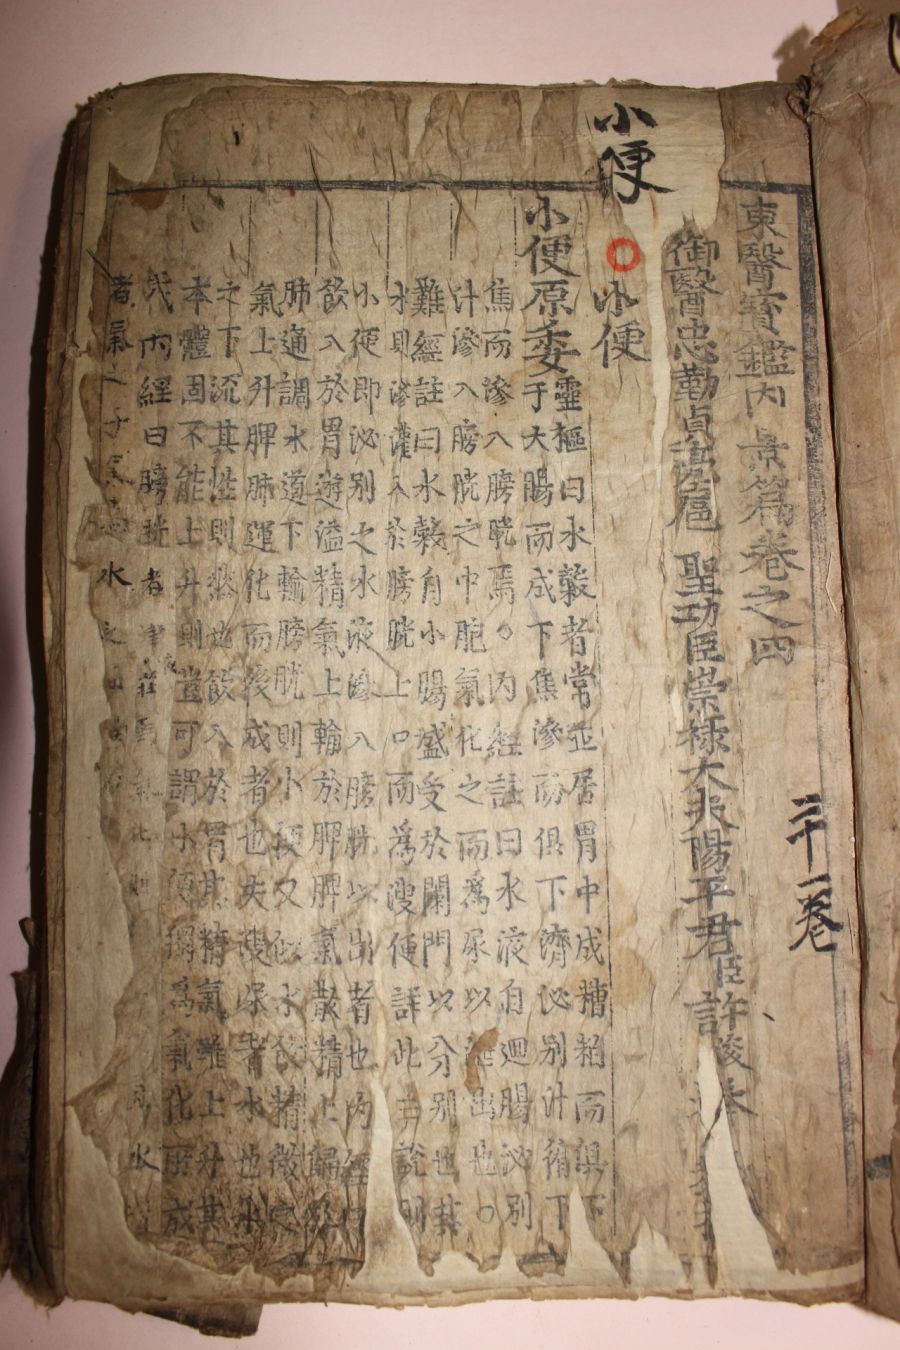 二十一卷
東醫寶鑑內景篇卷之四
御醫忠勤貞亮扈 聖功臣崇祿大夫陽平君臣許浚奉
小便
○小便
小便原委靈樞曰水穀者常並居胃中成糟粕而俱下
于大腸而成下焦滲而俱下濟泌別汁循下
焦而滲入膀胱焉○內經註曰水液自迴腸泌別
汁滲入膀胱之中胞氣化之而爲尿以泄出也○
難經註曰水穀自小腸盛受於闌門以分別也其
水則滲灌入於膀胱上口而爲溲便詳此主說則
小便卽泌別之水液滲入膀胱以出者也內經曰
飮入於胃遊溢精氣上輸於脾脾氣散精上歸於
肺通調水道下輸膀胱則小便又似水飮精微之
氣上升脾肺運化而後成者也夫溲尿者水也水
之下流其性則然也飮入於胃其精氣雖上升其
本體固不能上升則豈可謂小便獨爲氣化所成
哉內經曰膀胱者津 焉氣化則 水
者氣之子氣 水之